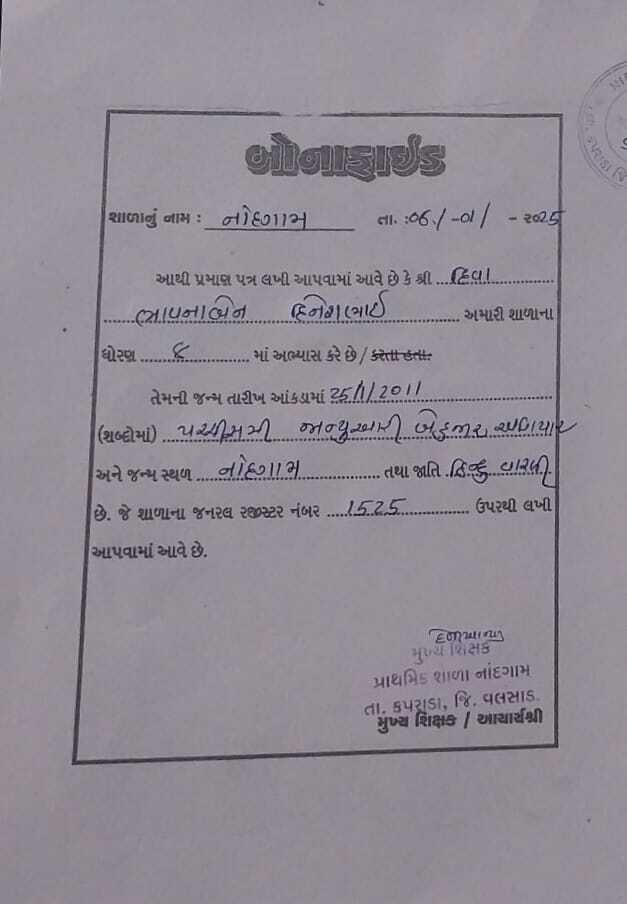 બોનાફાઈડ
શાળાનું નામ : નાંદગામ તા. :06/-01/ - ૨૦25
આથી પ્રમાણ પત્ર લખી આપવામાં આવે છે કે શ્રી ...દિવા...
...ભાવનાબેન દિનેશભાઈ... અમારી શાળાના
ધોરણ ...૮... માં અભ્યાસ કરે છે / કરતા હતા.
તેમની જન્મ તારીખ આંકડામાં 25/1/2011
(શબ્દોમાં) પચીસમી જાન્યુઆરી બેહજાર અગિયાર
અને જન્મ સ્થળ ...નાંદગામ... તથા જાતિ .હિન્દુ વારલી.
છે. જે શાળાના જનરલ રજીસ્ટર નંબર ....1525.... ઉપરથી લખી
આપવામાં આવે છે.
મુખ્ય શિક્ષક
પ્રાથમિક શાળા નાંદગામ
તા. કપરાડા, જિ. વલસાડ.
મુખ્ય શિક્ષક / આચાર્યશ્રી
કપરાડા